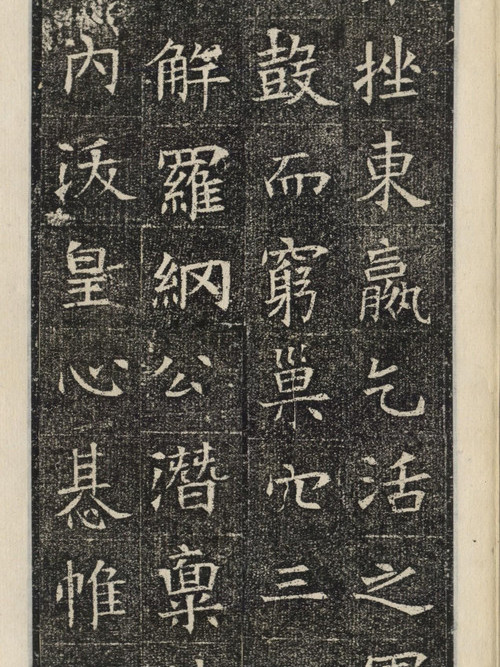 挫東嬴乞活之
鼓而窮巢穴三
解羅網公潛稟
內沃皇心惎帷